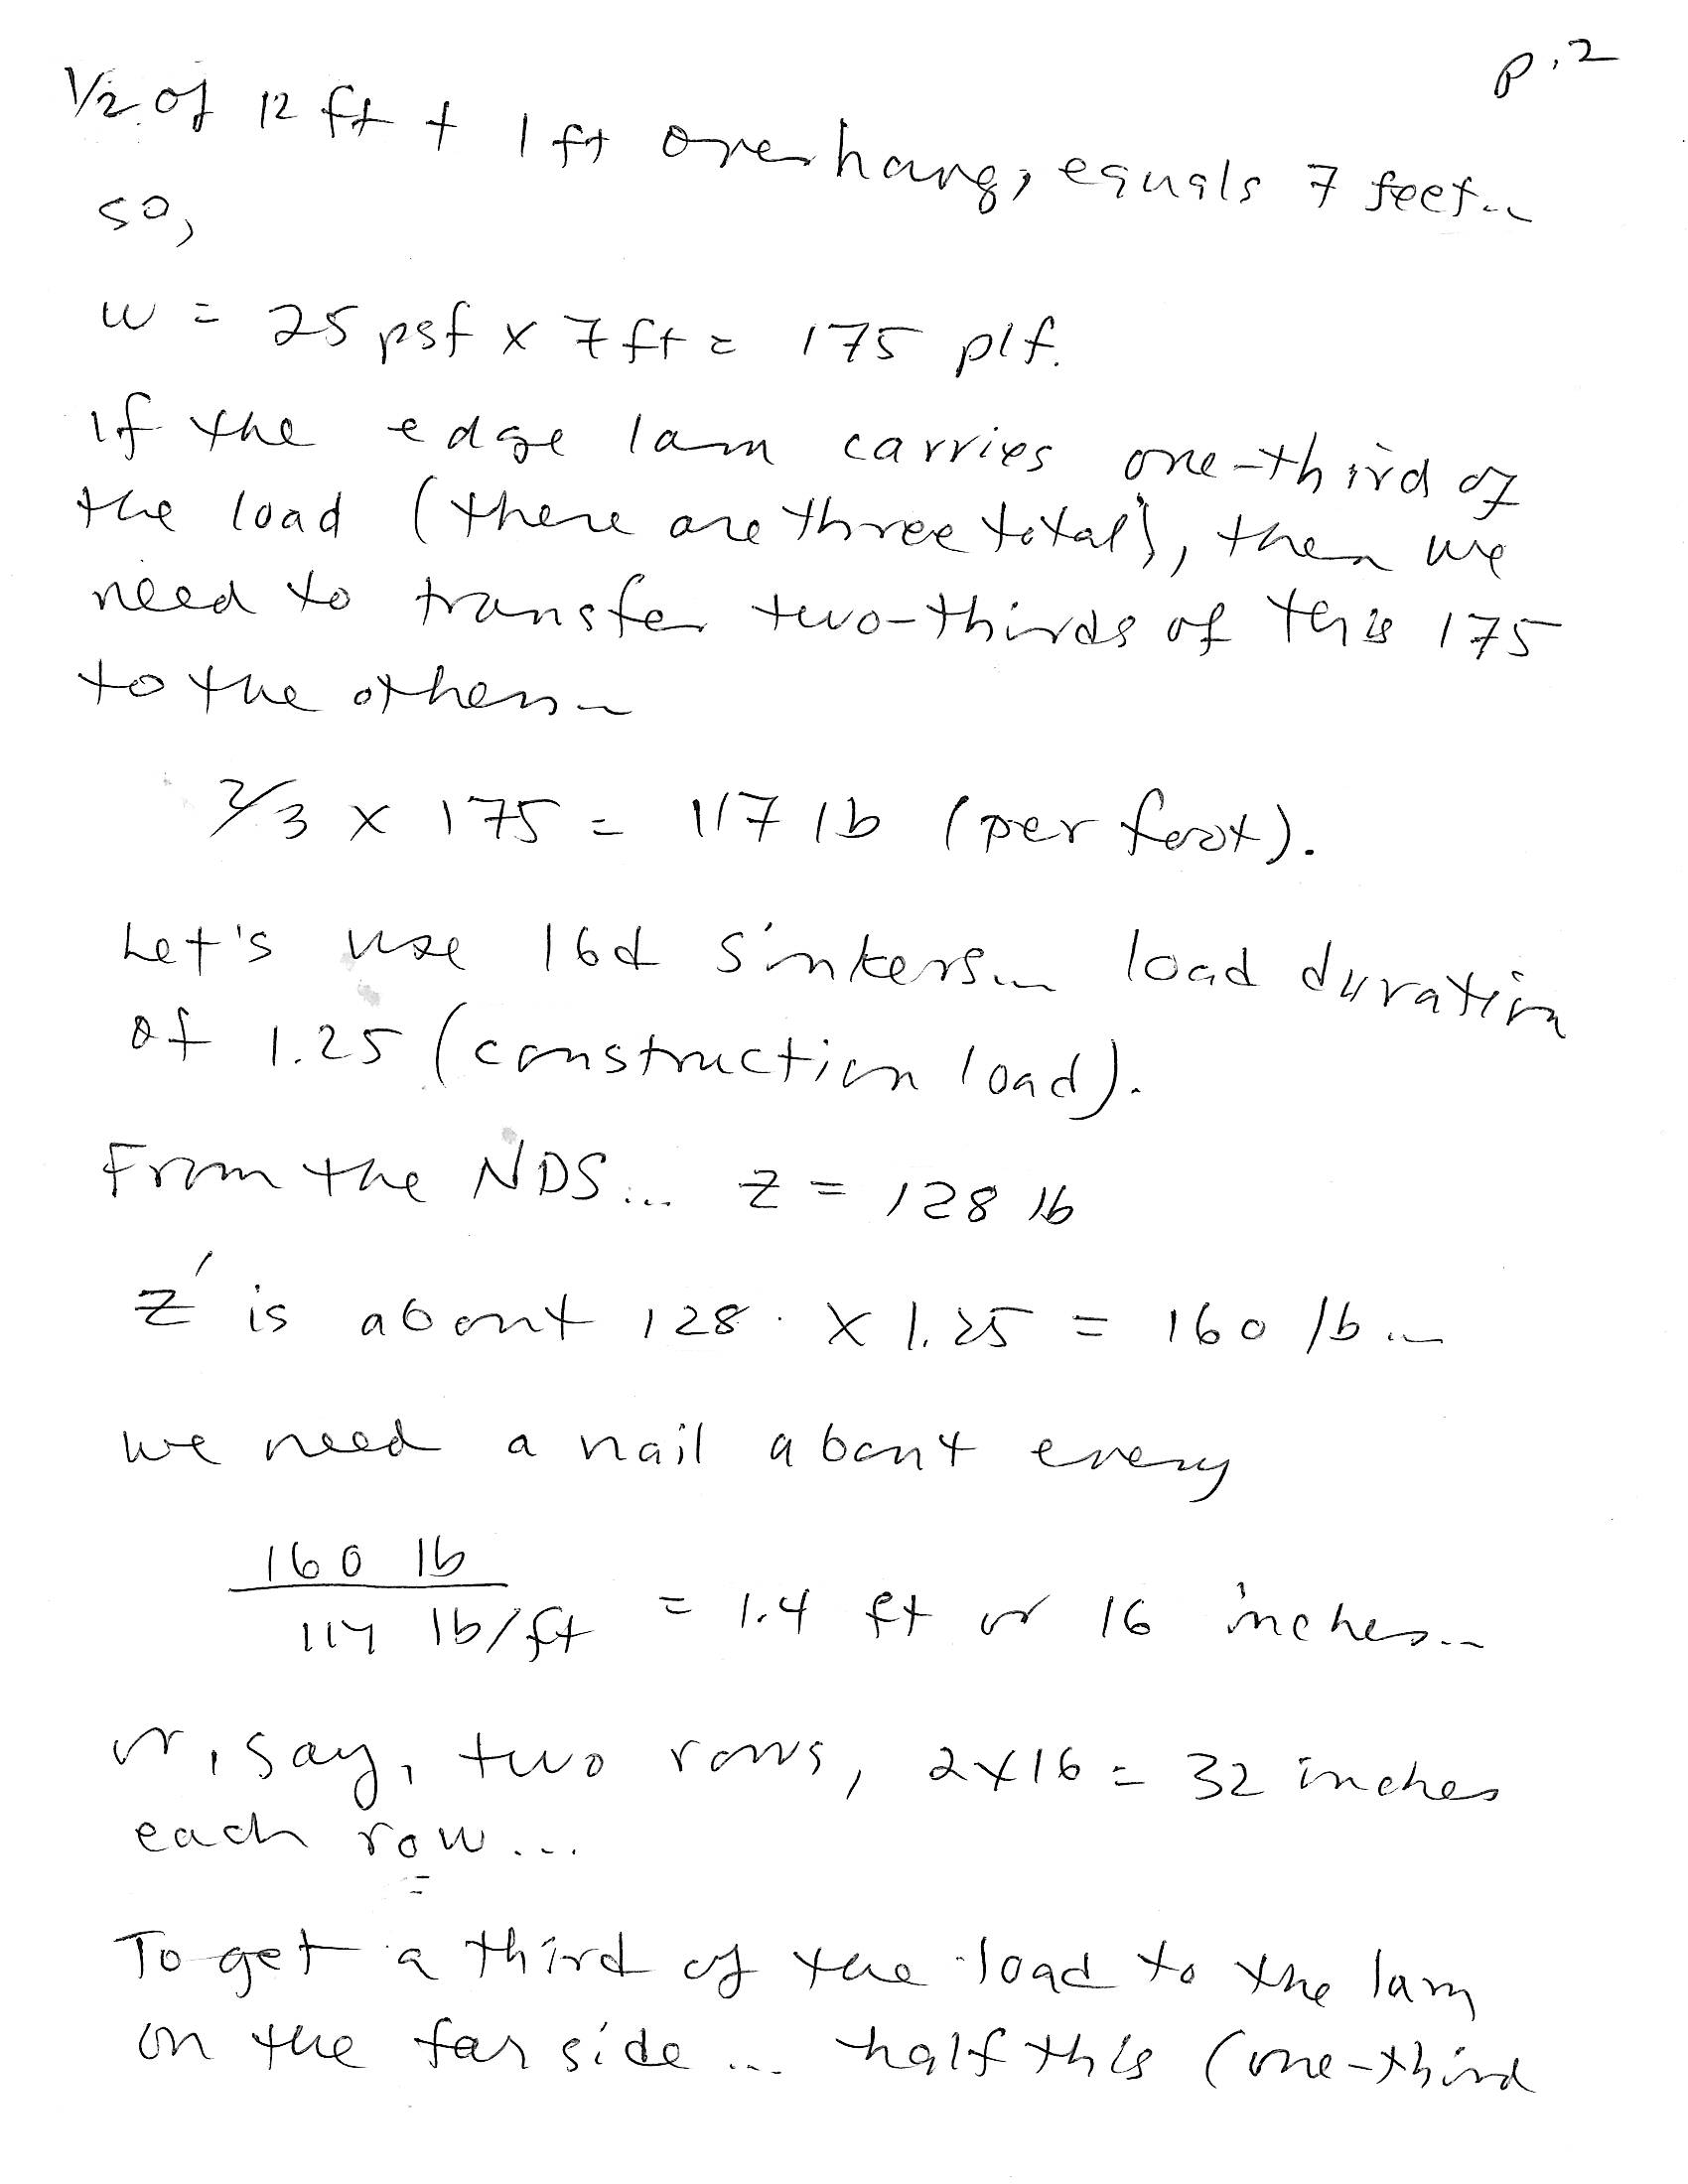 p.2
1/2 of 12 ft + 1 ft overhang, equals 7 feet...
so,
w = 25 psf x 7 ft = 175 plf.
If the edge lam carries one-third of
the load (there are three total), then we
need to transfer two-thirds of this 175
to the others...
2/3 x 175 = 117 lb (per foot).
Let's use 16d sinkers... load duration
of 1.25 (construction load).
From the NDS... Z = 128 lb
Z' is about 128 x 1.25 = 160 lb...
we need a nail about every
160 lb
117 lb/ft = 1.4 ft or 16 inches...
or, say, two rows, 2x16 = 32 inches
each row...
To get a third of the load to the lam
on the far side... half this (one-third